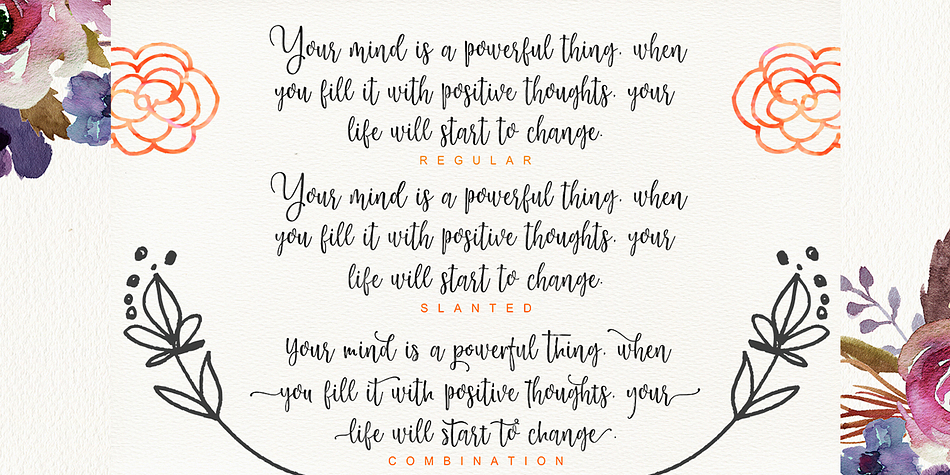 Your mind is a powerful thing. when
you fill it with positive thoughts. your
life will start to change.
REGULAR
Your mind is a powerful thing. when
you fill it with positive thoughts. your
life will start to change.
SLANTED
your mind is a powerful thing. when
you fill it with positive thoughts. your
life will start to change.
COMBINATION